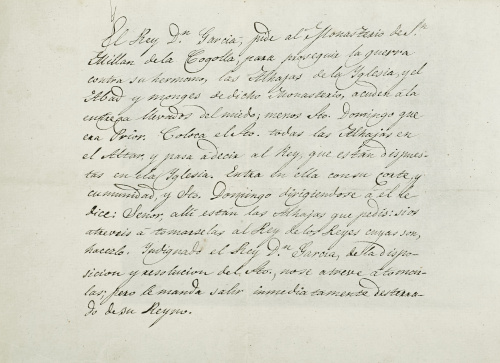 El Rey Dn. Garcia, pide al Monasterio de Sn.
Millan de la Cogolla, para proseguir la guerra
contra su hermono, las Alhajas de la Yglesia, y el
Abad y monges de dicho Monasterio, acuden a la
entrega llevados del miedo; menos Sto. Domingo que
era Prior. Coloca el Sto. todas las Alhajas en
el Altar, y pasa a decir al Rey, que estan dispues-
tas en la Yglesia. Entra en ella con su Corte, y
cumunidad, y Sto. Domingo dirigiendose á el le
dice: Señor, alli estan las Alhajas que pedis: si os
atreveis á tomarselas al Rey de los Reyes cuyas son,
hacerlo. Indignado el Rey Dn. Garcia, de la dispo-
sicion y resolucion del Sto. no se atreve á tomar-
las; pero le manda salir inmediatamente desterra-
do de su Reyno.